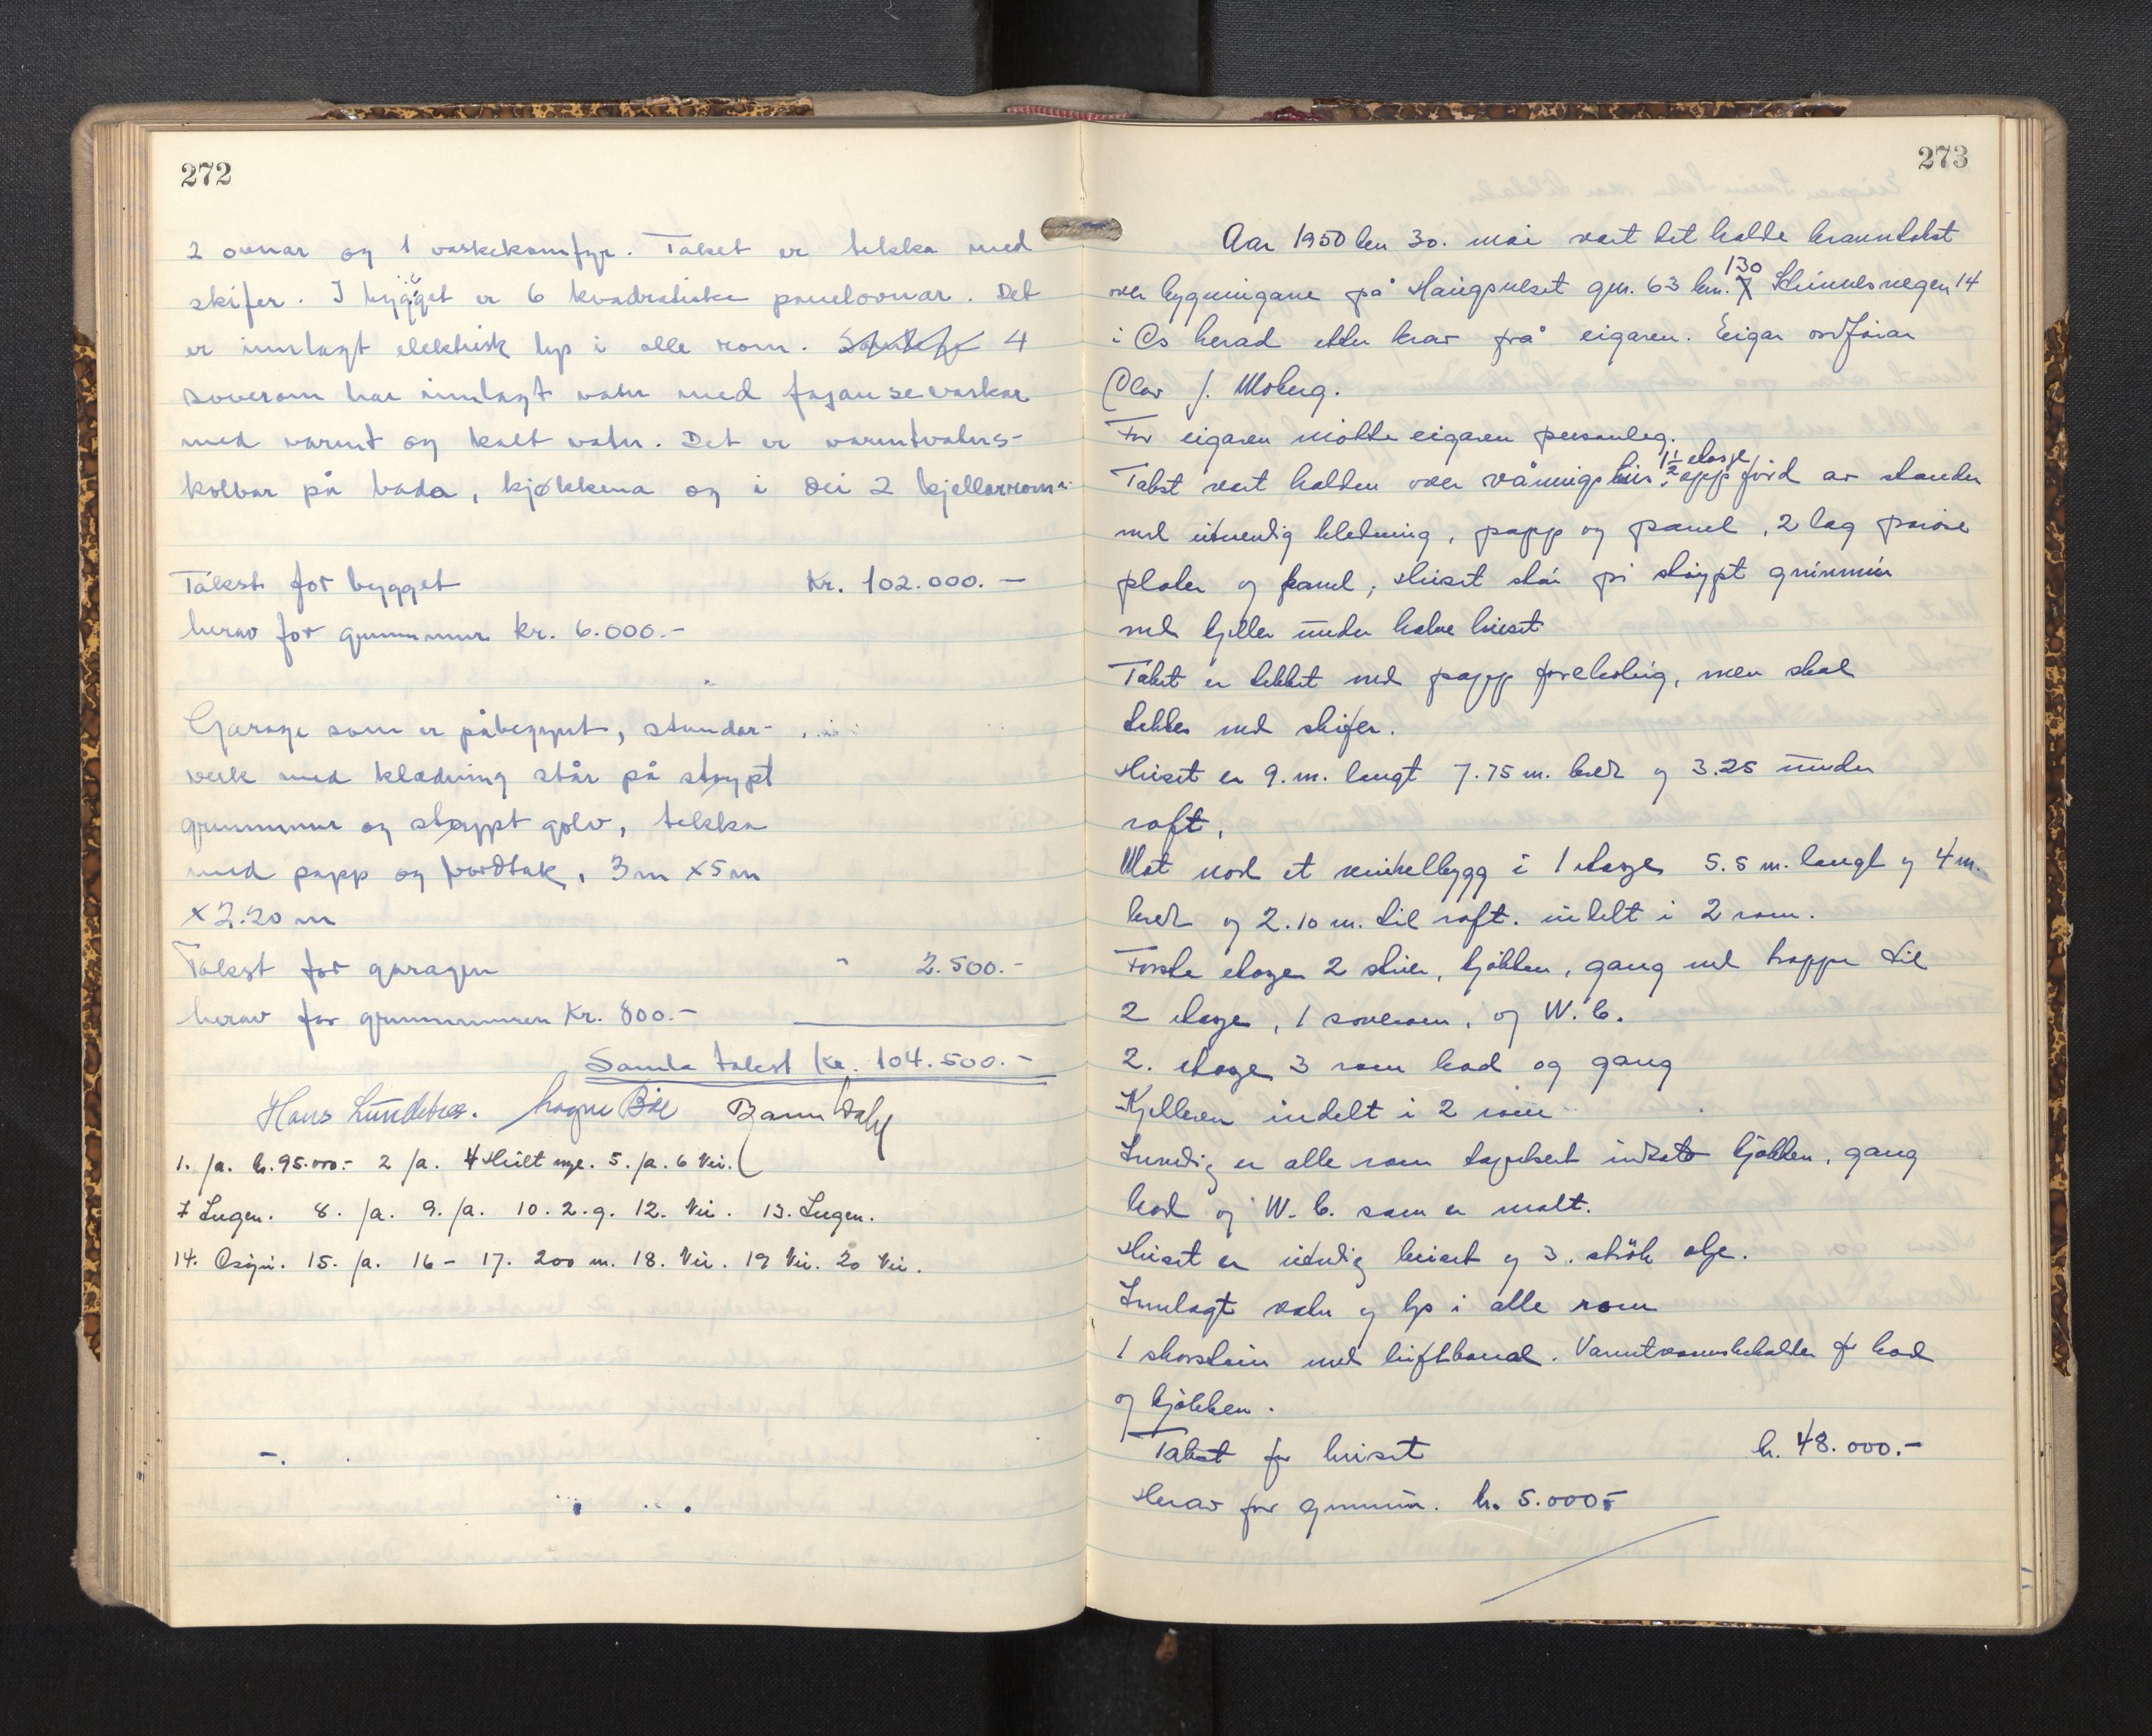 272
2 ovnar og 1 vaskekomfyr. Taket er tekka med
skifer. I bygget er 6 kvadratiske panelovnar. Det
er innlagt elektrisk lys i alle rom. 4
soverom har innlagt vatn med fajansevaskar
med varmt og kalt vatn. Det er varmtvatns-
kolbar på bada, kjøkkena og i dei 2 kjellarroma
Takst for bygget Kr. 102.000.-
herav for grunnmur kr. 6.000.-
Garage som er påbegynt, standar-
verk med klædning står på støypt
grunnmur og støypt golv, tekka
med papp og bordtak, 3m x 5m
x 2.20 m
Takst for garagen " 2.500.-
herav for grunnmuren Kr. 800.-
Samla takst kr. 104.500.-
Hans Lundetræ. Magne Bøe
1. Ja. kr. 95.000.- 2 Ja. 4 Heilt nye. 5. Ja. 6 Nei.
7 Ingen. 8. Ja. 9. Ja. 10. 2. g. 12. Nei. 13. Ingen.
14. Osøyri. 15. Ja. 16 - 17. 200 m. 18. Nei. 19 Nei. 20 Nei.
273
Aar 1950 den 30. mai vart det halde branntakst
over bygningane på Haugsneset gnr. 63 bnr. 130 14
i Os herad etter krav frå eigaren. Eigar ordførar
Olav J. Moberg.
For eigaren møtte eigaren personleg.
Takst vart halden over våningshus 1 1/2 etasje oppførd av stander
med utvendig kledning, papp og panel, 2 lag porøse
plater og panel, Huset står på støypt grunnmur
med kjeller under halve huset
Taket er tekket med papp foreløbig, men skal
tekkes med skifer.
Huset er 9. m. langt 7.75 m. bredt og 3.25 under
raft.
Mot nord et vinkelbygg i 1 etasje 5.5 m. langt og 4 m.
bredt og 2.10 m. til raft. indelt i 2 rom.
Første etasje 2 stuer, kjøkken, gang med trappe til
2 etasje, 1 soverom, og W.C.
2. etasje 3 rom bad og gang
Kjelleren indelt i 2 rom
Innvendig er alle rom tapetsert undtatt kjøkken, gang
bad og W.C. som er malt.
Huset er utvendig beiset og 3. strøk olje.
Innlagt vatn og lys i alle rom
1 skorstein med luftkanal. Varmtvannsbeholder for bad
og kjøkken.
Takst for huset kr. 48.000.-
Herav for grunnmur. kr. 5.000.-